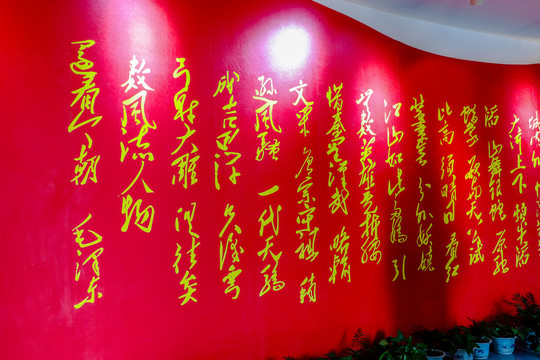 城内外
大河上下 顿失滔
滔 山舞银蛇 原驰
蜡象 欲与天公试
比高 须晴日 看红
装素裹 分外妖娆
江山如此多娇 引
无数英雄竞折腰
惜秦皇汉武 略输
文采 唐宗宋祖 稍
逊风骚 一代天骄
成吉思汗 只识弯
弓射大雕 俱往矣
数风流人物
还看今朝 毛泽东